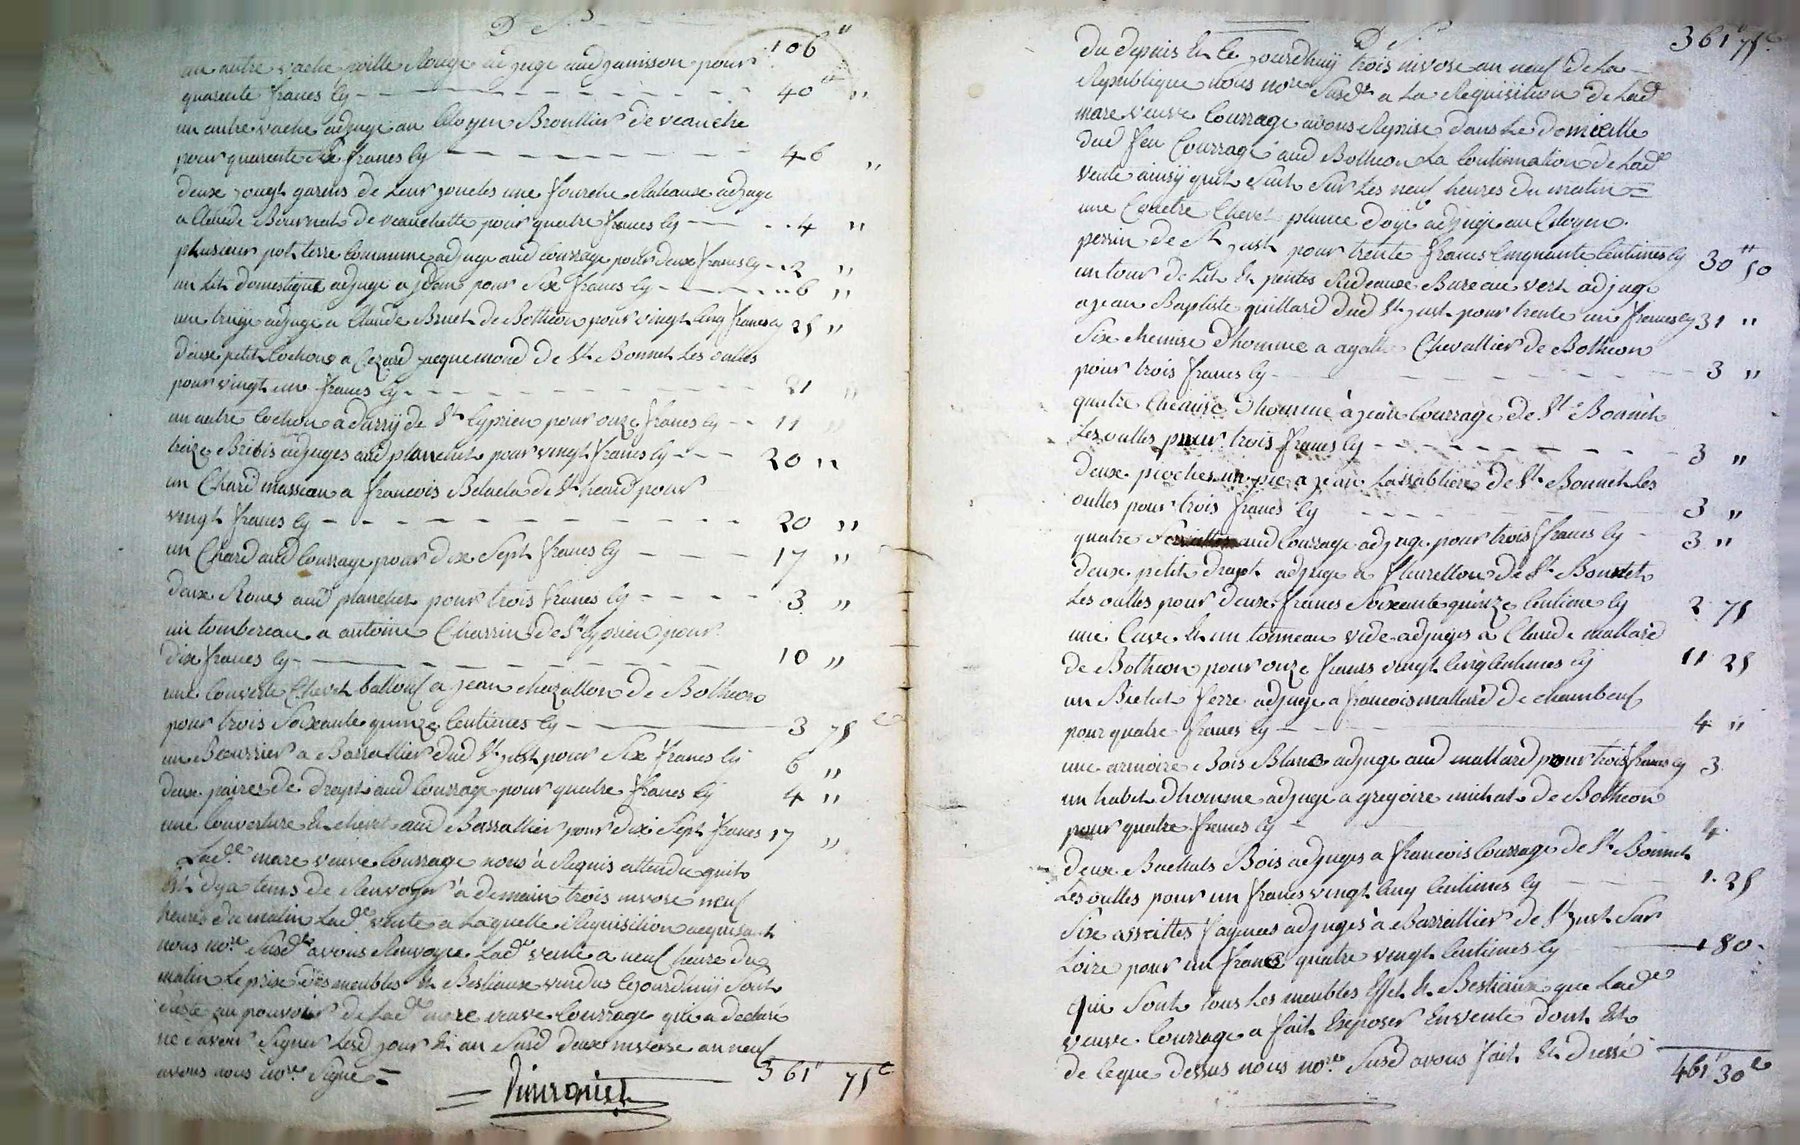 D S.
106 "
un autre vache poille Rouge adjugé aud janisson pour
quarente francs cy 40 "
un autre vache adjugé au Citoyen Broullier de veauche
pour quarente six francs cy 46 "
deux jougt garnis de leur joucles une fourche Rateause adjugé
a Claude Bournat de veauchette pour quatre francs cy 4 "
plusieur pot terre commune adjugé aud Courrage pour deux francs cy 2 "
un Lit domestique adjugé a jdem pour Six francs cy 6 "
une truije adjugé a Claude Brunet de Botheon pour vingt cinq francs cy 25 "
deux petit Cochons a Cezard jacquemond de St. Bonnet Les oulles
pour vingt un francs cy 21 "
un autre Cochon a de St. Cyprien pour onze francs cy 11 "
treize Brebis adjugés aud planchet pour vingt francs cy 20 "
un Chard masseau a francois de St. heard pour
vingt francs cy 20 "
un Chard aud Courrage pour dix Sept francs cy 17 "
deux Roues aud planchet pour trois francs cy 3 "
un tombereau a antoine Charrin de St. Cyprien pour
dix francs cy 10 "
une Couverte Chevet ballouf a jean chazallon de Botheon
pour trois Soixante quinze Centimes cy 3 75 c
un Beurrier a Barrallier dud St. just pour Six francs cy 6 "
deux paires de drapt aud Courrage pour quatre francs cy 4 "
une Couverture & chevet aud Barrallier pour dix Sept francs 17 "
Lade. mare veuve Courrage nous à Requis attendu quil
Est deja tems de Renvoyer à demain trois nivose neuf
heures du matin Lade. vente a Laquelle Requisition acquisant
nous nore. Susd. avons Renvoyé Lade. vente a neuf heure du
matin Le prise des meubles & Bestiaux vendus cejourdhuij Sont
Resté au pouvoir de Lade. mare veuve Courrage qui a declaré
ne Savoir Signer Lesd jour & an Susd deux nivose an neuf
avons nous nore. Signé =
361 " 75 c
D S.
361 " 75 c
Du depuis & Ce jourdhuij trois nivose an neuf de La
Republique nous nore Susd. a La Requisition de Lade
mare veuve Courrage avons Reprise dans Le domicille
dud feu Courrage aud Botheon La Continuation de Lade
vente ainsy quil Suit Sur Les neuf heures du matin =
une Couetre Chevet plume doije adjugé au Citoyen
perrin de St just pour trente francs Cinquante Centimes cy 30 " 50
un tour de Lit & pentes Rideaux Bureau vert adjugé
a jean Baptiste guillard dud St. just pour trente un francs cy 31 "
Six chemise dhomme a agatte Chevallier de Botheon
pour trois francs cy 3 "
quatre Chemise dhomme à jean Courrage de St. Bonnet
Les oulles pour trois francs cy 3 "
deux pioches un pic a jean Lassabliere de St. Bonnet Les
oulles pour trois francs cy 3 "
quatre aud Courrage adjugé pour trois francs cy 3 "
deux petit drapt adjugé a fleuretton de St. Bonnet
Les oulles pour deux francs Soixante quinze Centime cy 2 75
une Cuve & un tonneau vide adjugés a Claude mallard
de Botheon pour onze francs vingt Cinq Centimes cy 11 25
un Bichet ferré adjugé a francois mallard de chambeuf
pour quatre francs cy 4 "
une armoire Bois Blanc adjugé aud mallard pour trois francs cy 3
un habit dhomme adjugé a gregoire michat de Botheon
pour quatre francs cy 4
deux Bachats Bois adjugés a francois Courrage de St. Bonnet
Les oulles pour un francs vingt Cinq Centimes cy 1. 25
Six assiettes fayances adjugés à Barrallier de St. just Sur
Loire pour un francs quatre vingt Centimes cy 1 80
Qui Sont tous Les meubles Effet & Bestiaux que Lade
veuve Courrage a fait Exposer Envente dont &
de Ceque dessus nous nore. Susd avons fait & dressé
461 " 30 c